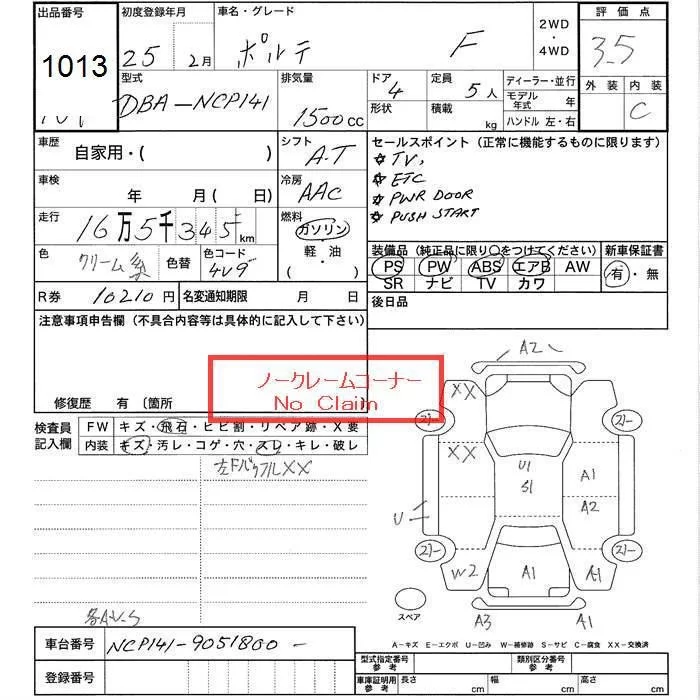 出品番号 初度登録年月 車名・グレード 2WD・4WD 評価点
1013 25 2月 ポルテ F 3.5
型式 排気量 ドア 4 定員 5人 ディーラー・並行 外装 内装
DBA-NCP141 1500cc 形状 積載 kg モデル年式 年 C
ハンドル 左・右
車歴 自家用・( ) シフト A.T セールスポイント (正常に機能するものに限ります)
☆TV,
車検 年 月(日) 冷房 AAC ☆ETC
☆PWR DOOR
走行 16万5千345km 燃料 ガソリン・軽・油・( ) ☆PUSH START
色 クリーム系 色替 色コード 4V9 装備品 (純正品に限り○をつけてください) 新車保証書
PS PW ABS エアB AW 有・無
SR ナビ TV カワ
R券 10210円 名変通知期限 月 日 後日品
注意事項申告欄 (不具合内容等は具体的に記入して下さい)
ノークレームコーナー
No Claim
修復歴 有 〔箇所
検査員記入欄 FW キズ・飛石・ヒビ割・リペア跡・X要
内装 キズ・汚レ・コゲ・穴・スレ・キレ・破レ
A2
XX
XX
U1
S1
A1
A2
U
W2 A1 A1
A3 A1
スペア
各A.U.S
A-キズ E-エクボ U-凹み W-補修跡 S-サビ C-腐食 XX-交換済
車台番号 NCP141-9051800-
登録番号
型式指定番号参考 類別区分番号参考
車庫証明用参考 長さ cm 幅 cm 高さ cm